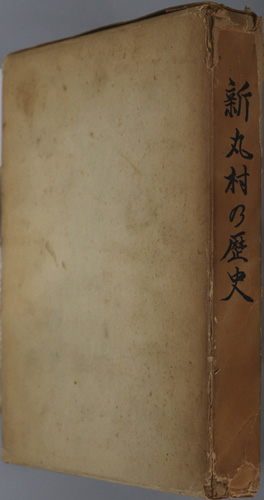 新丸村の歴史